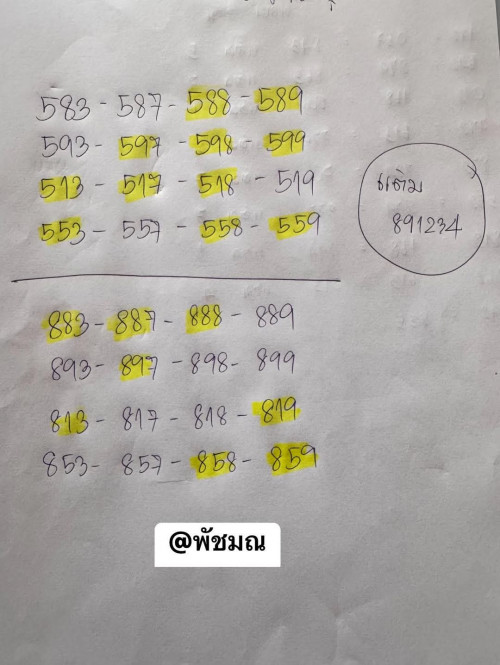 583 - 587 - 588 - 589
593 - 597 - 598 - 599
513 - 517 - 518 - 519
553 - 557 - 558 - 559
แต้ม
891234
883 - 887 - 888 - 889
893 - 897 - 898 - 899
813 - 817 - 818 - 819
853 - 857 - 858 - 859
@พัชมณ